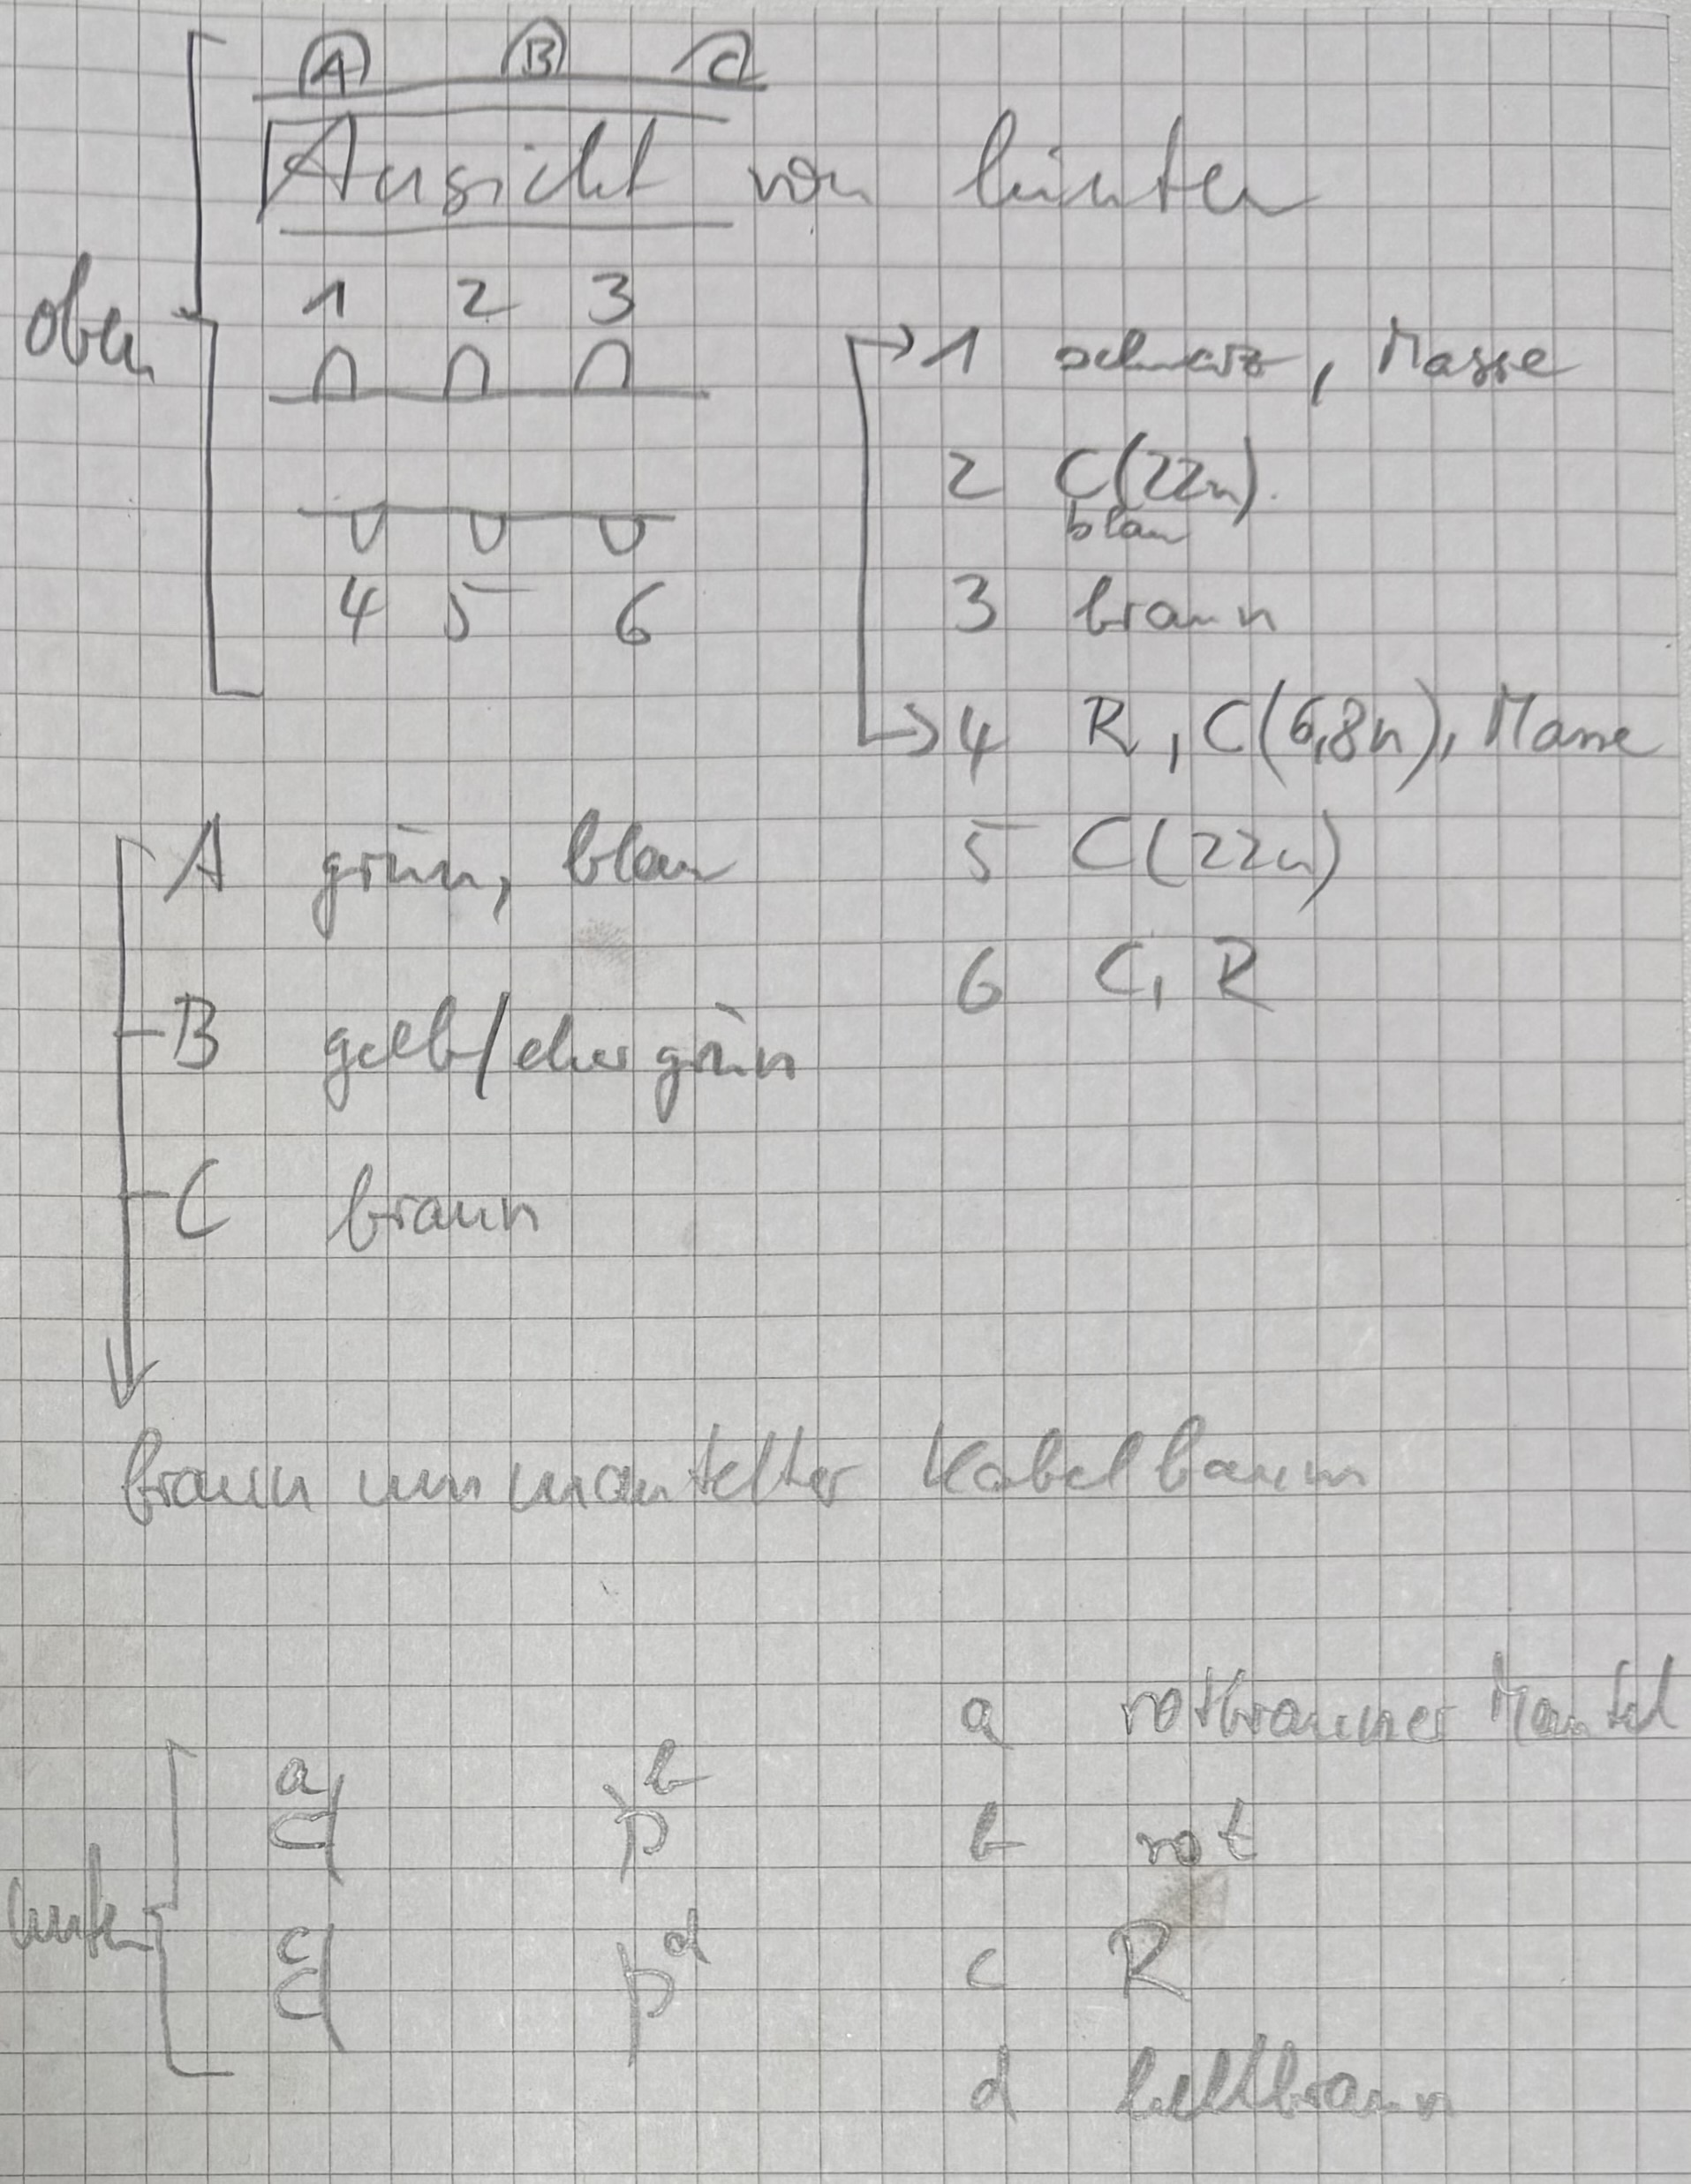 A B C
Ansicht von hinten
oben
1 2 3
4 5 6
1 schwarz, Masse
2 C(22n).
blau
3 braun
4 R, C(6,8n), Masse
5 C(22n)
6 C, R
A grün, blau
B gelb/eher grün
C braun
braun ummantelter Kabelbaum
unten
a b
c d
a rotbrauner Mantel
b rot
c R
d hellbraun